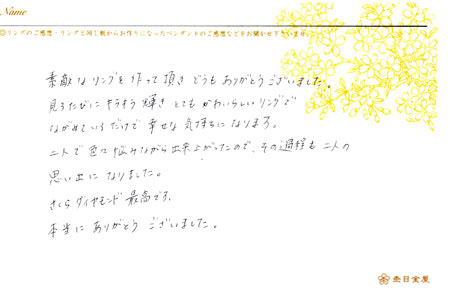 Name
◎リングのご感想・リングと同じ杢からお作りになったペンダントのご感想などをお聞かせ下さいませ。
素敵なリングを作って頂き どうも ありがとうございました。
見るたびに キラキラ 輝き とても かわいらしいリングで
ながめているだけで 幸せな 気持ちになります。
二人で 色々 悩みながら 出来上がったので、その過程も 二人の
思い出に なりました。
さくらダイヤモンド 最高です。
本当に ありがとう ございました。
杢目金屋